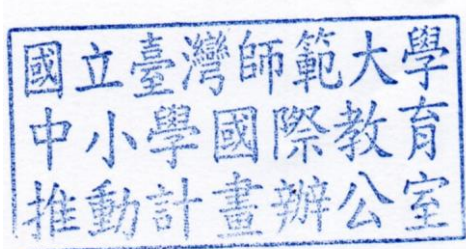 國立臺灣師範大學
中小學國際教育
推動計畫辦公室